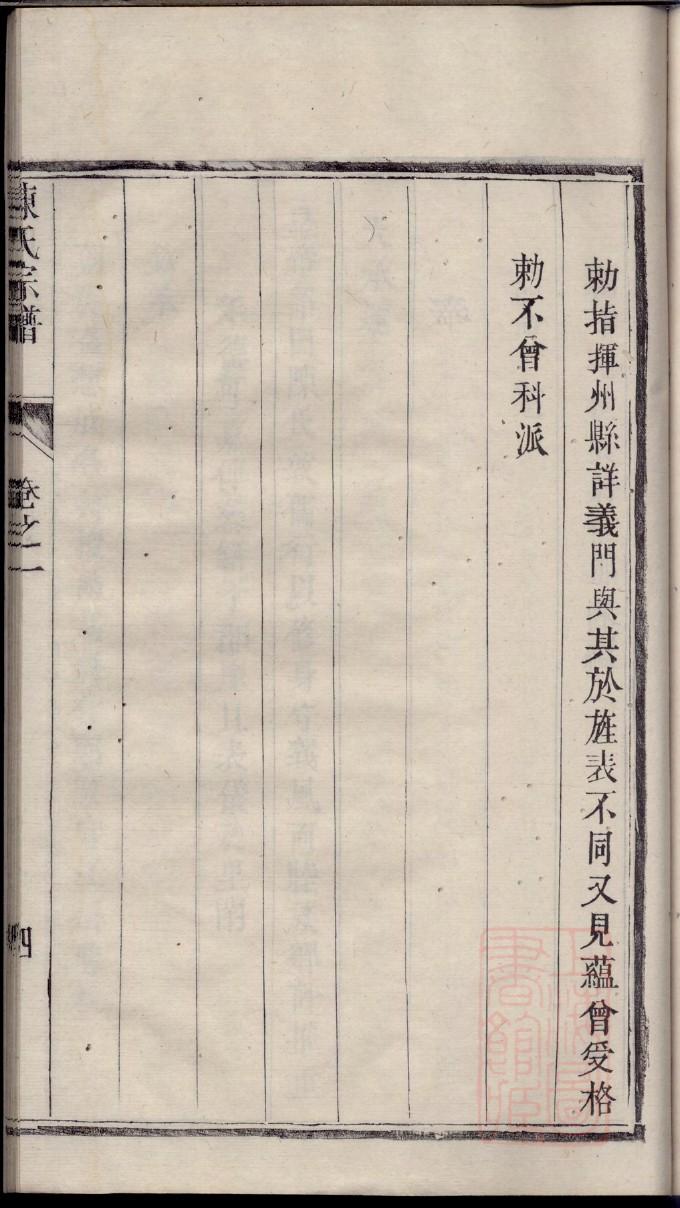 勅指揮州縣詳義門與其於旌表不同又見蘊曾受格
勅不曾科派
陳氏宗譜
卷之二
四